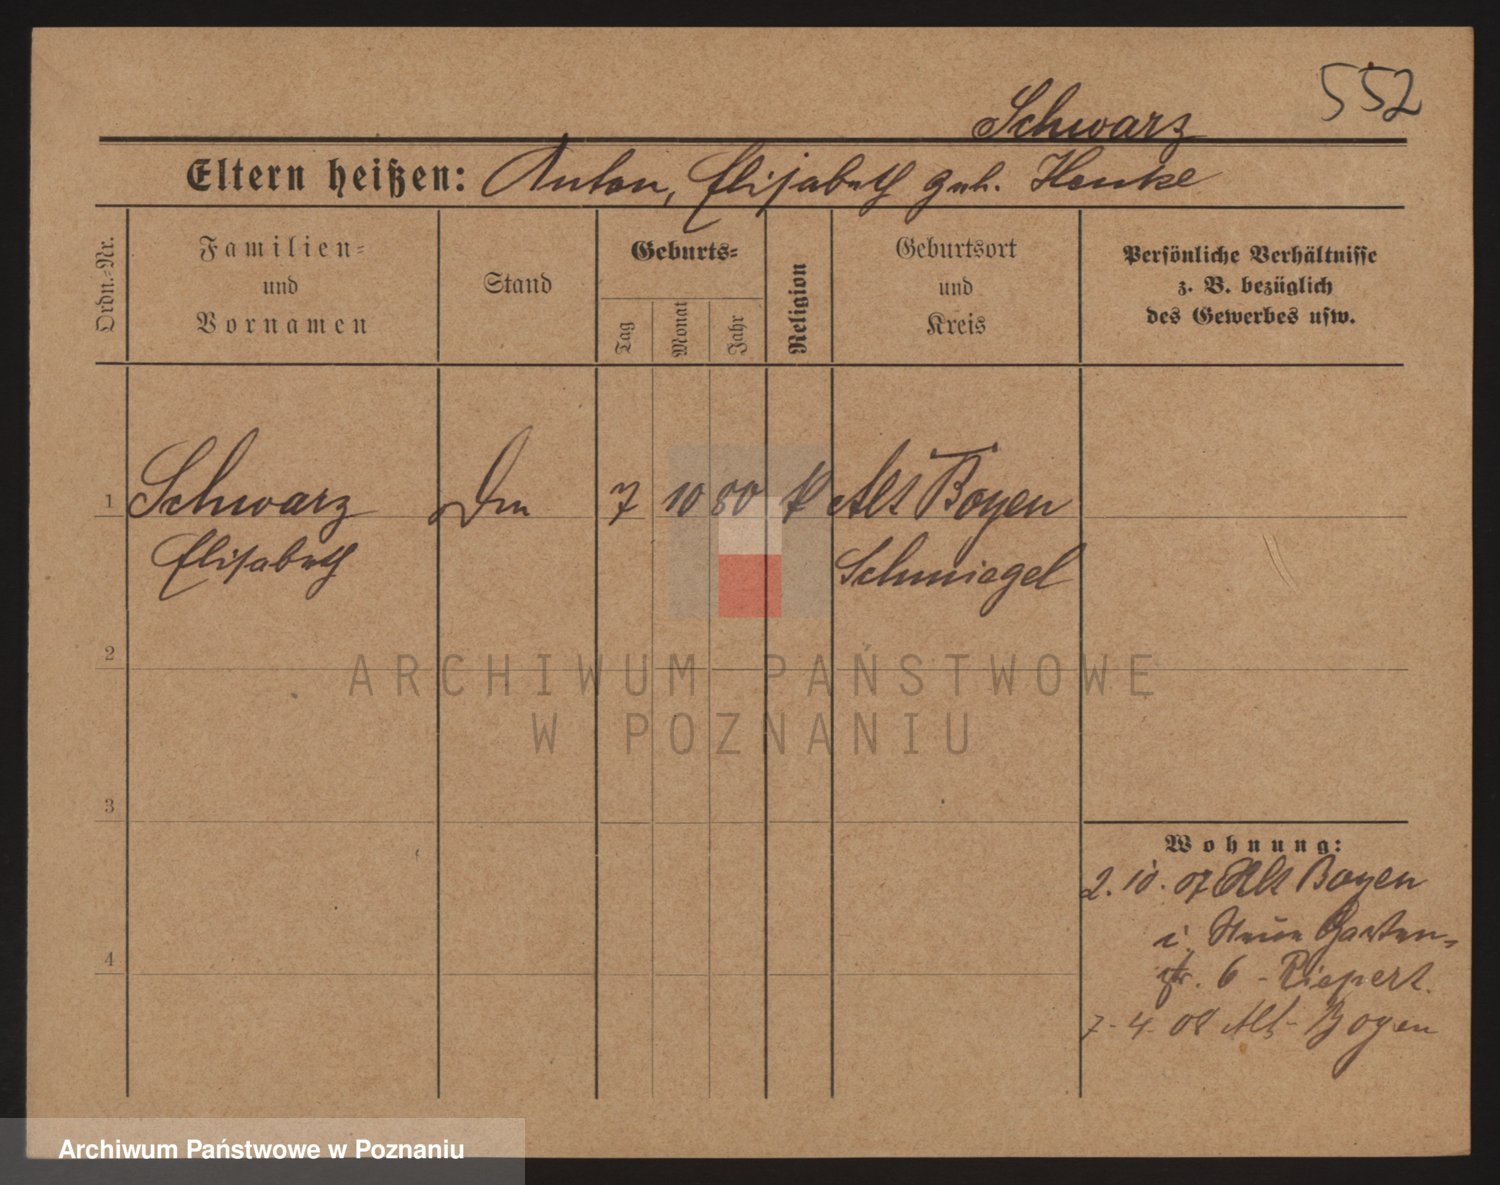 552
Schwarz
Eltern heißen: Anton, Elisabeth geb. Henke
Ordn.-Nr.
Familien-
und
Vornamen
Stand
Geburts-
Tag
Monat
Jahr
Religion
Geburtsort
und
Kreis
Persönliche Verhältnisse
z. B. bezüglich
des Gewerbes usw.
1 Schwarz 7 10 80 k Alt Boyen
Elisabeth Schmiegel
2
ARCHIWUM PAŃSTWOWE
W POZNANIU
3
Wohnung:
2. 10. 07 Alt Boyen
i. Neue Garten-
str. 6 - Riepert.
4
7. 4. 08 Alt-Boyen
Archiwum Państwowe w Poznaniu